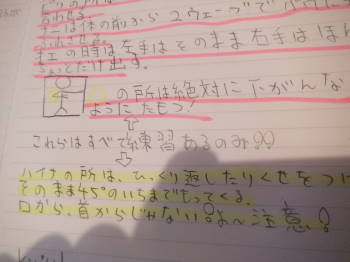 ーは体の前から2ウェーブで
の時は左手はそのまま右手はほん
ちょっとだけ出す。
の所は絶対に下がんな
ようにたもつ!
⇧
これらはすべて練習あるのみ!!
⇩
ハイナの所は、ひっくり返したりくせをつけ
そのまま45°のいちまでもってくる。
口から、首からじゃない!!よ~注意!